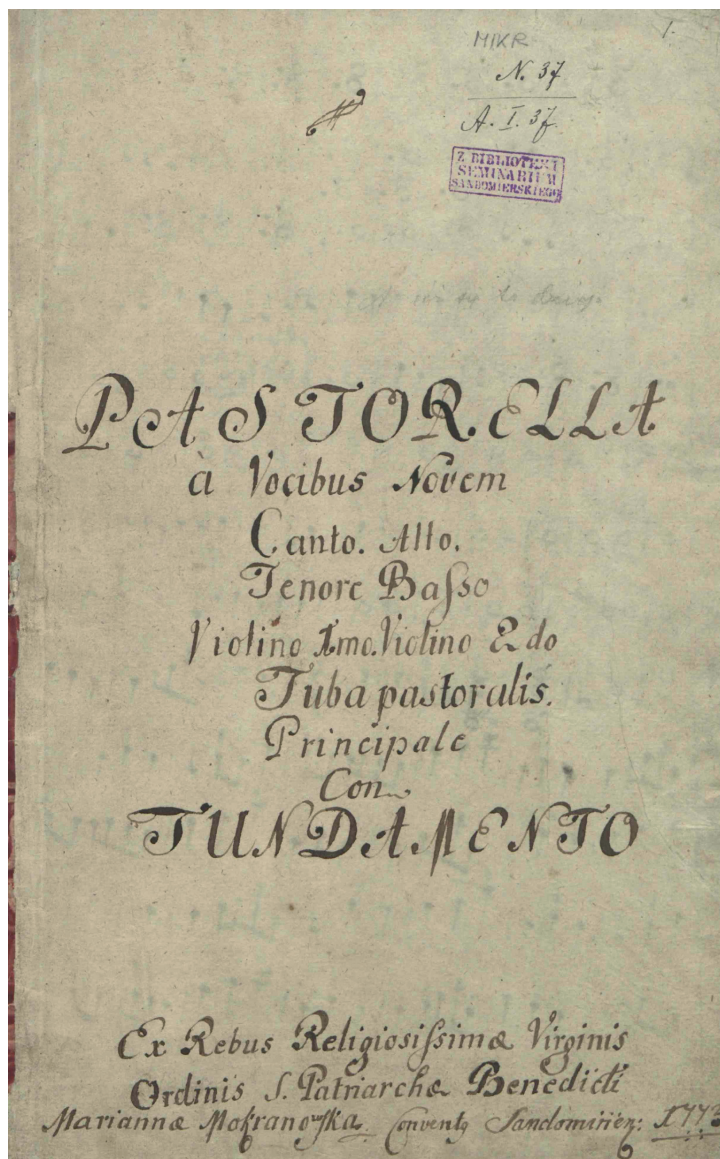 1.
MIKR
N. 37
A. I. 37.
Z BIBLIOTEKI
SEMINARIUM
SANDOMIERSKIEGO
PASTORELLA
à Vocibus Novem
Canto. Alto.
Tenore Baſso
Violino Imo. Violino 2do
Tuba pastoralis.
Principale
Con
FUNDAMENTO
Ex Rebus Religiosiſsimæ Virginis
Ordinis S. Patriarchæ Benedicti
Mariannæ Conventq Sandomirien: